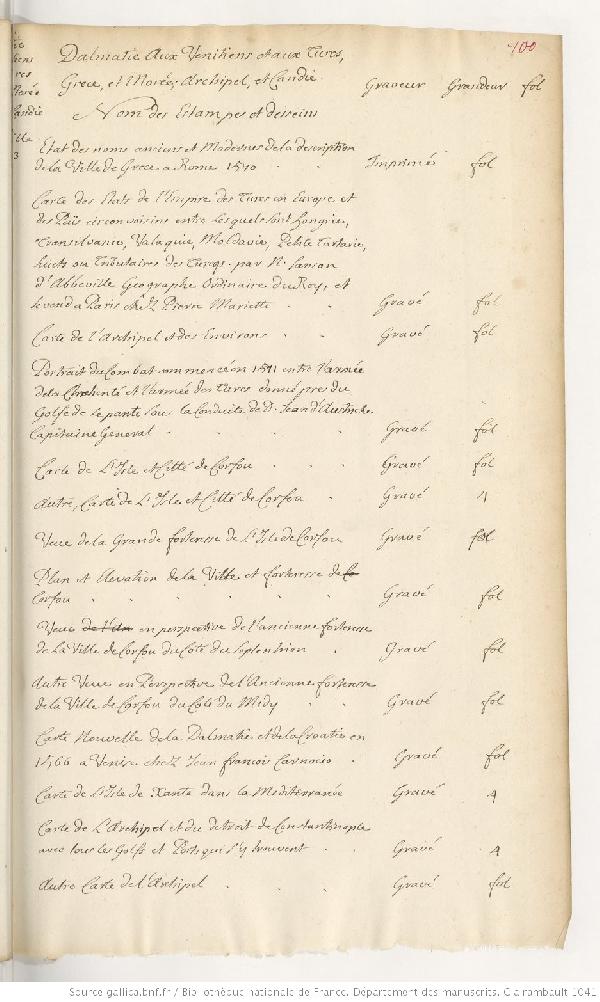 100
Dalmatie Aux Venitiens et aux Turcs,
Grece, et Morée, Archipel, et Candie
Graveur Grandeur fol
Nom des Estampes et desseins
Etat des noms anciens et Modernes de la description
de la Ville de Grece a Rome Imprimé fol
Carte des Etats de l'Empire des Turcs en Europe et
des Païs circonvoisins entre lesquels sont hongrie,
Transilvanie, Valaquie, Moldavie, Petite Tartarie,
ou Tributaires des Turcqs par N. Sanson
d'Abbeville Geographe Ordinaire du Roy, et
se vend a Paris chez Pierre Mariette Gravé fol
Carte de l'Archipel et des Environs Gravé fol
Portrait du Combat commencé en 1571 entre l'armée
de la Chretienté et l'armée des Turcs donné pres du
Golfe de Lepante sous la Conduite de D. Jean d'Austriche
Capitaine General Gravé fol
Carte de L'Isle et Citté de Corfou Gravé fol
Autre, Carte de L'Isle et Citté de Corfou Gravé 4
Veue de la Grande forteresse de L'Isle de Corfou Gravé fol
Plan et Elevation de la Ville et forteresse de Co
Corfou Gravé fol
Veue en perspective de l'ancienne forteresse
de La Ville de Corfou du Coté du Septentrion Gravé fol
Autre Veue en Perspective de l'Ancienne forteresse
de la Ville de Corfou du Coté du Midy Gravé fol
Carte Nouvelle de la Dalmatie et de la Croatie en
1566 a Venise chez Jean francois Camocio Gravé fol
Carte de L'Isle de Xante dans la Mediterranée Gravé 4
Carte de L'Archipel et du detroit de Constantinople
avec tous les Golfs et Ports qui s'y trouvent Gravé 4
Autre Carte de l'Archipel Gravé fol
Source gallica.bnf.fr / Bibliothèque nationale de France. Département des manuscrits. Clairambault 1041